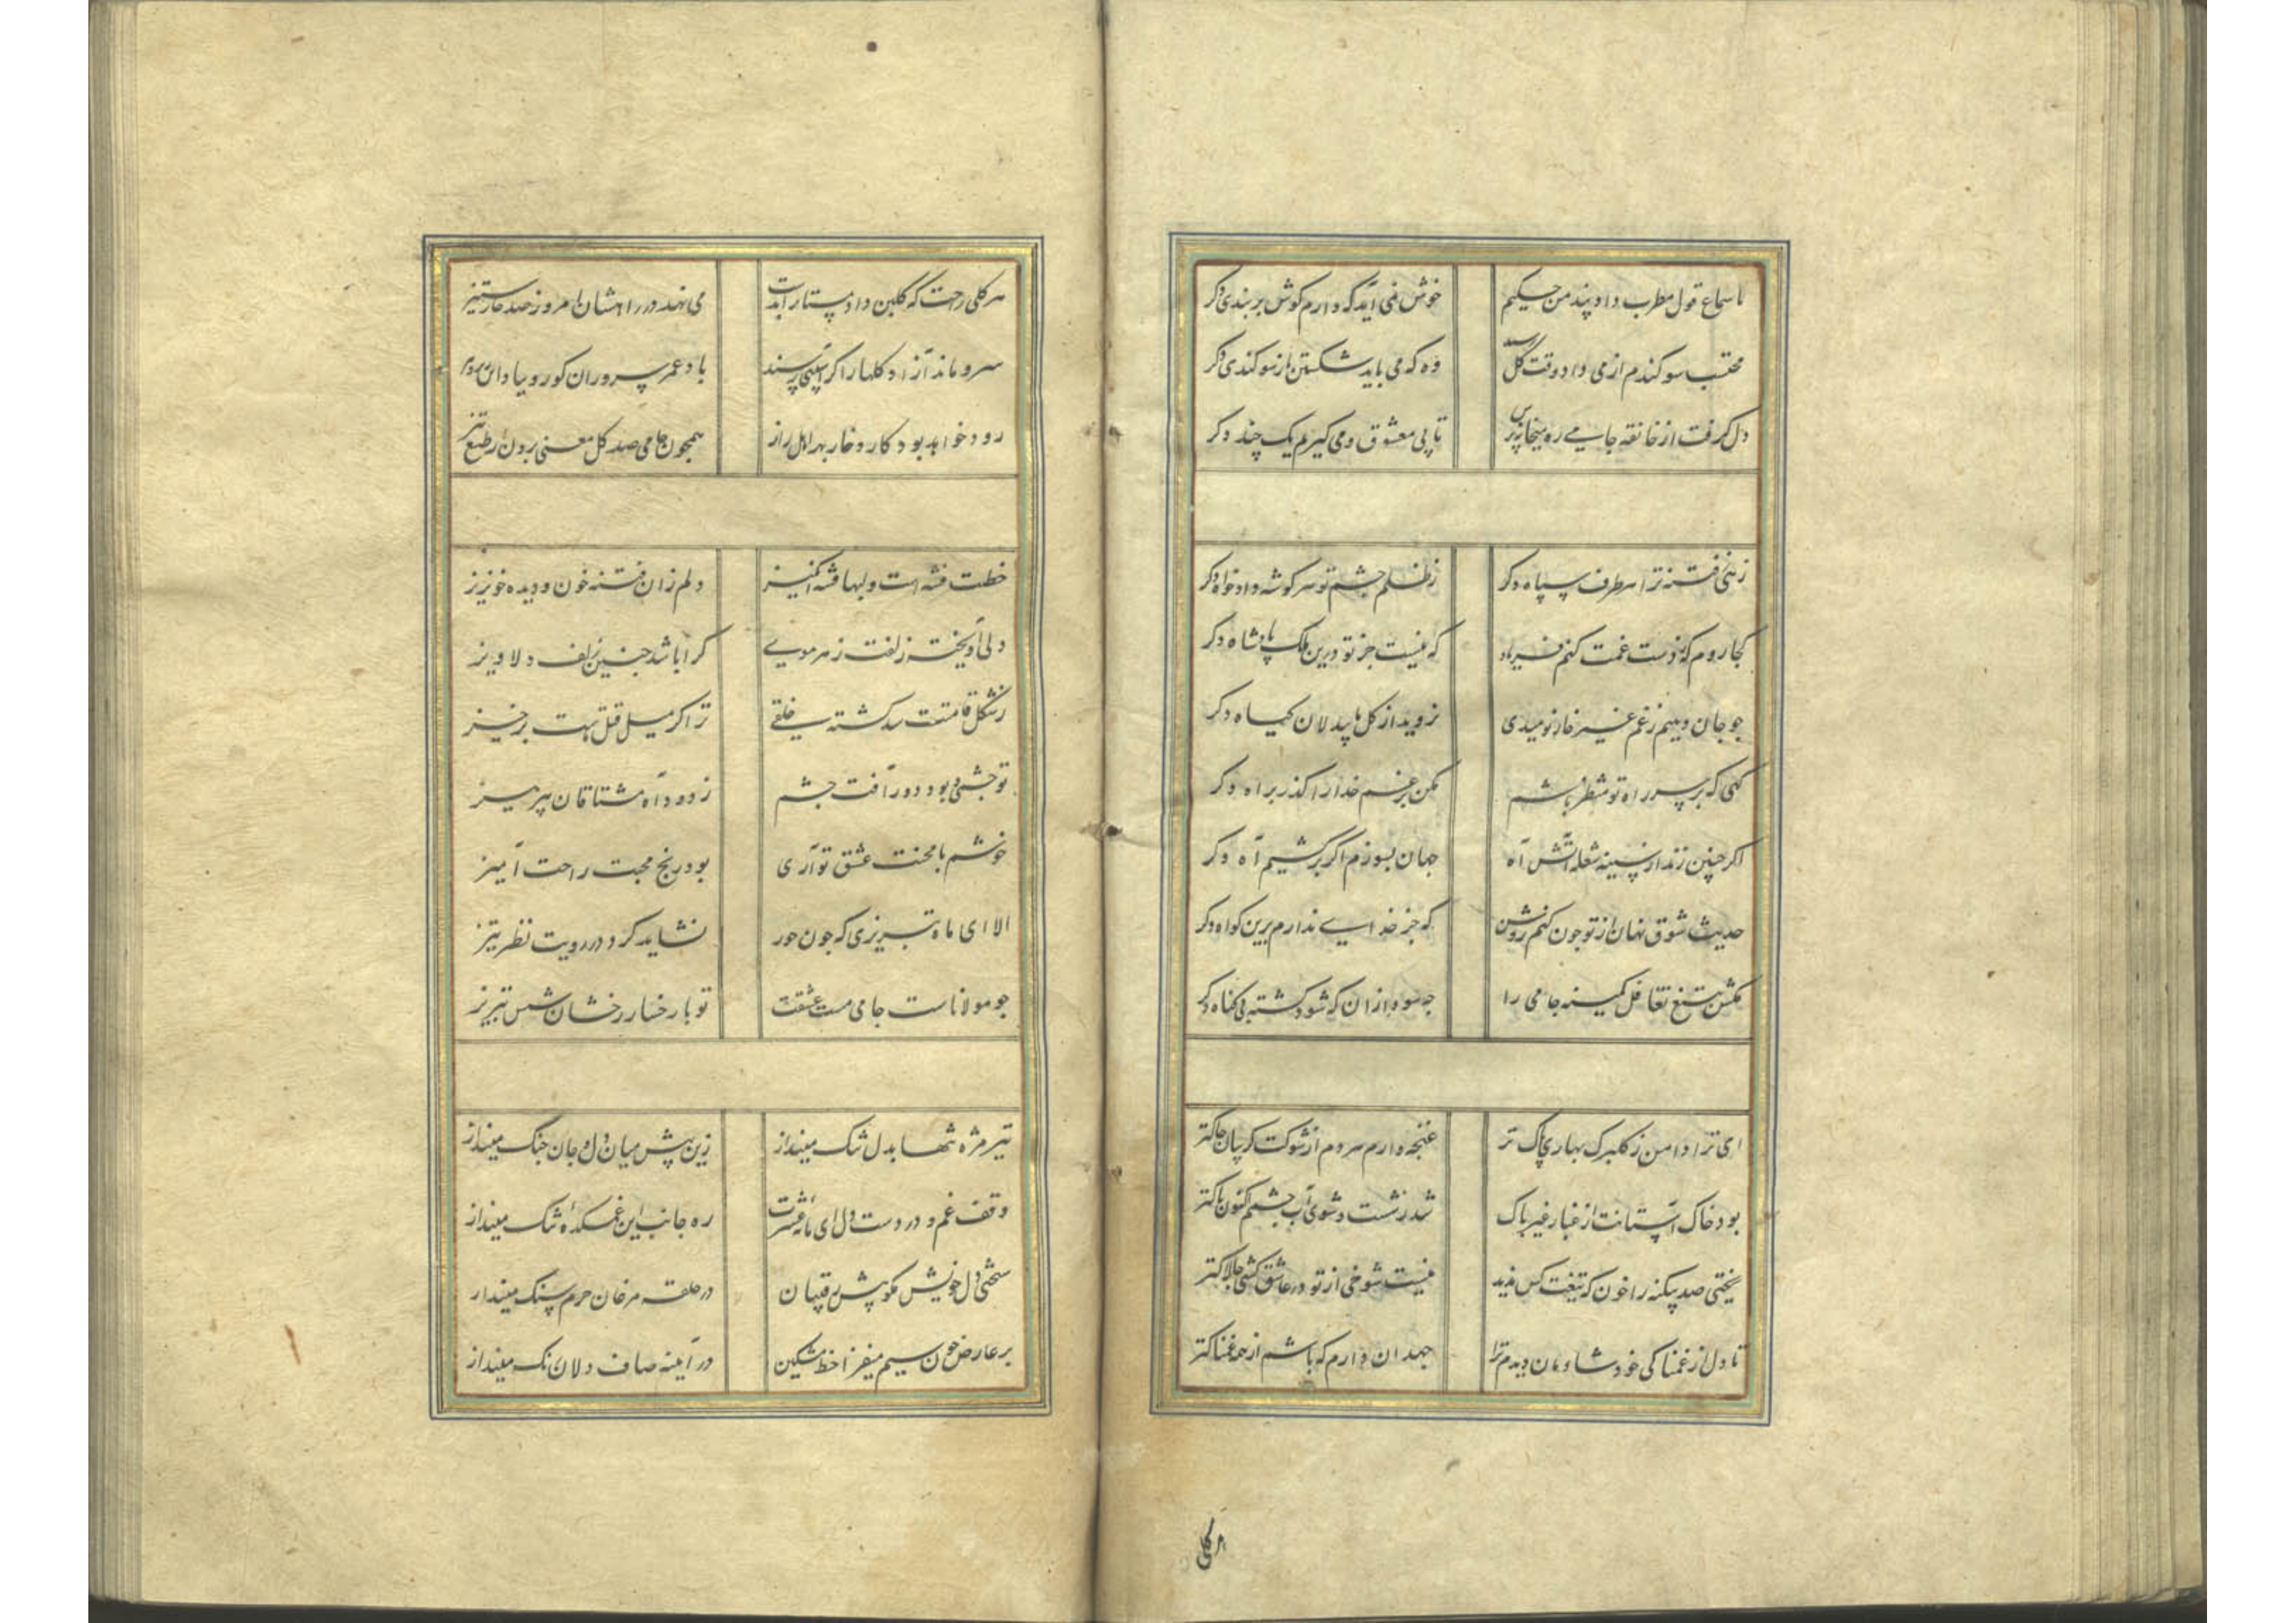 تا سماع قول مطرب داد پند من حکیم
خوش نمی آید که دارم گوش بر بندی دکر
محتسب سوکندم از می داد و وقت گل رسید
وه که می باید شکستن باز سوکندی دکر
دل گرفت از خانقه جامی ره میخانه پرس
تا پی معشوق و می کیرم یک چند دکر
زهی فتنه ترا هر طرف سپاه دکر
ز ظلم چشم تو هر کوشه دادخواه دکر
کجا روم که ز دست غمت کنم فریاد
که نیست جز تو درین ملک پادشاه دکر
جو جان دهیم ز غم غیر خار نومیدی
نروید از کل ما بیدلان کیاه دکر
کهی که بر سر راه تو منتظر باشم
مکن برغم خدا را گذر براه دکر
اکر چنین زند از سینه شعله آتش آه
جهان بسوزم اگر برکشیم آه دکر
حدیث شوق نهان از تو جون کنم روشن
که جز خدایی ندارم برین کواه دکر
مکش بتیغ تغافل کمینه جامی را
چه سود ازان که شود کشته بی کناه دکر
ای ترا دامن ز کلبرک بهاری پاک تر
غنجه وارم هر دم از شوقت کریبان چاکتر
بود خاک آستانت از غبار غیر پاک
شد ز شست و شوی آب چشمم کنون پاکتر
ریختی صد بیکنه را خون که تیغت کس ندید
نیست شوخی از تو در عاشق کشی چالاکتر
تا دل از غمناکی خود شادمان دیدم ترا
جهد آن دارم که باشم از همه غمناکتر
هر کلی
هر کلی راحت که گلبن داد پستار ابدت
می نهد در راهشان امروز صد خار ستیز
سرو ماند آزاد کلها را اکر آسیبی رسند
باد عمر سروران کو رو بیاد
رود خواهد بود کار و خار بهر اهل راز
همچون جامی صد کل معنی برون ز طبع تیز
خطت فتنه است و لبها فتنه انکیز
دلم زان فتنه خون و دیده خونریز
دلی آویخته زلفت ز هر مویی
کرا باشد جنین زلف دلاویز
ز شکل قامتت شد کشته خلقی
ترا کر میل قتل ماست برخیز
تو جشمی بود دور آفت جشم
ز دود آه مشتاقان بپرهیز
خوشم با محنت عشق تو آری
بود رنج محبت راحت آمیز
الا ای ماه تبریزی که جون خور
نشاید کرد در رویت نظر تیز
جو مولاناست جامی مست عشقت
تو با رخسار رخشان شمس تبریز
تیر مژه تنها بدل تنک مینداز
زین پیش میان دل و جان جنک مینداز
وقف غم و دردست دل ای مایه عشرت
ره جانب این غمکده تنک مینداز
سختی دل خویش مکو پیش رقیبان
در حلقه مرغان حرم سنک مینداز
بر عارض جون سیم میفزا خط مشکین
در آینه صاف دلان زنک مینداز